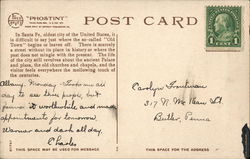 "PHOSTINT"
POST CARD
In Santa Fe, oldest city of the United States, it
is difficult to say just where the so-called "Old
Town" begins or leaves off. There is scarcely
a street without its place in history or where the
past does not mingle with the present. The life
of the city still revolves about the ancient Palace
and plaza, the old churches and chapels, and the
visitor feels everywhere the mellowing touch of
the centuries.
Albany. Monday
day to see their people, but
found it worthwhile and made
appointments for tomorrow.
Warmer and dark all day.
Charles
Carolyn Troutman
317 N. McKean St.
Butler, Penna
THIS SPACE MAY BE USED FOR MESSAGE
THIS SPACE FOR THE ADDRESS